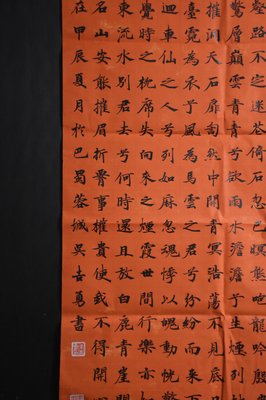 壑路不定迷花倚石忽已暝熊咆龍吟殷
驚層巔雲青青兮欲雨水澹澹兮生煙列
摧洞天石扉訇然中開青冥浩蕩不見底
臺霓為衣兮風為馬雲之君兮紛紛而來下
迴車仙之人兮列如麻忽魂悸以魄動怳驚
覺時之枕席失向來之煙霞世間行樂亦如
東流水別君去兮何時還且放白鹿青崖間
名山安能摧眉折腰事權貴使我不得開心
在甲辰夏月於巴蜀蓉城吳真書